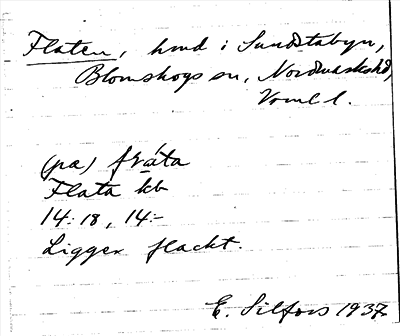 Flaten, hmd i Sundstabyn,
Blomskogs sn, Nordmarks hd,
Vrml l.
(pa) fråta
Flata kb
14:18, 14:-
Ligger flackt.
E. Silfors 1937